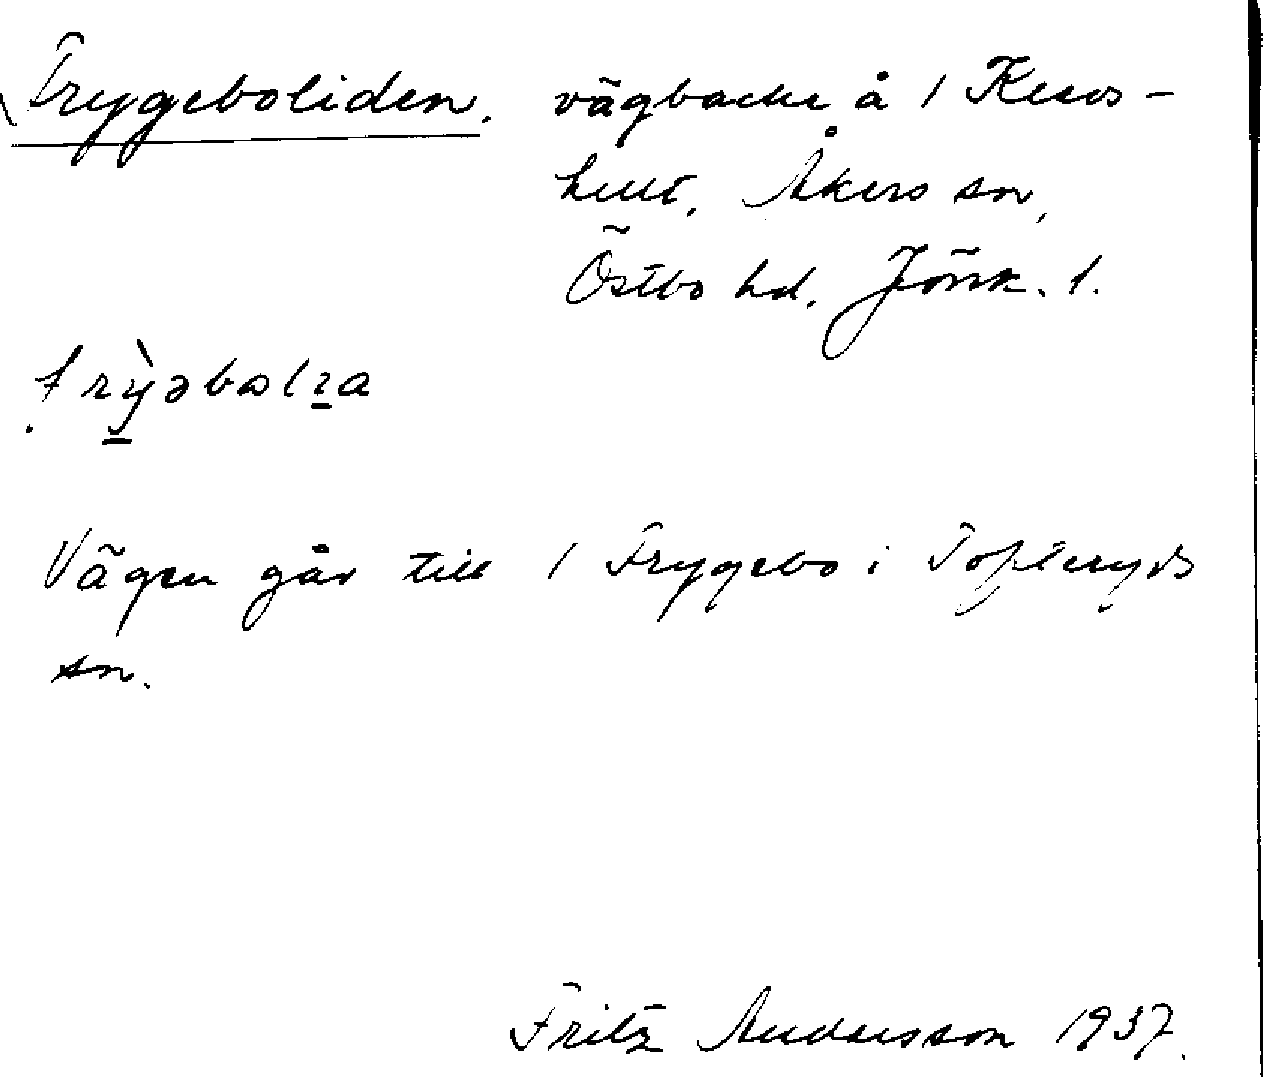 Frygeboliden. vägbacke å 1 Kers-
hult, Åkers sn,
Östbo hd, Jönk. l.
Vägen går till 1 Frygebo i Tofteryds
sn.
Fritz Andersson 1937.